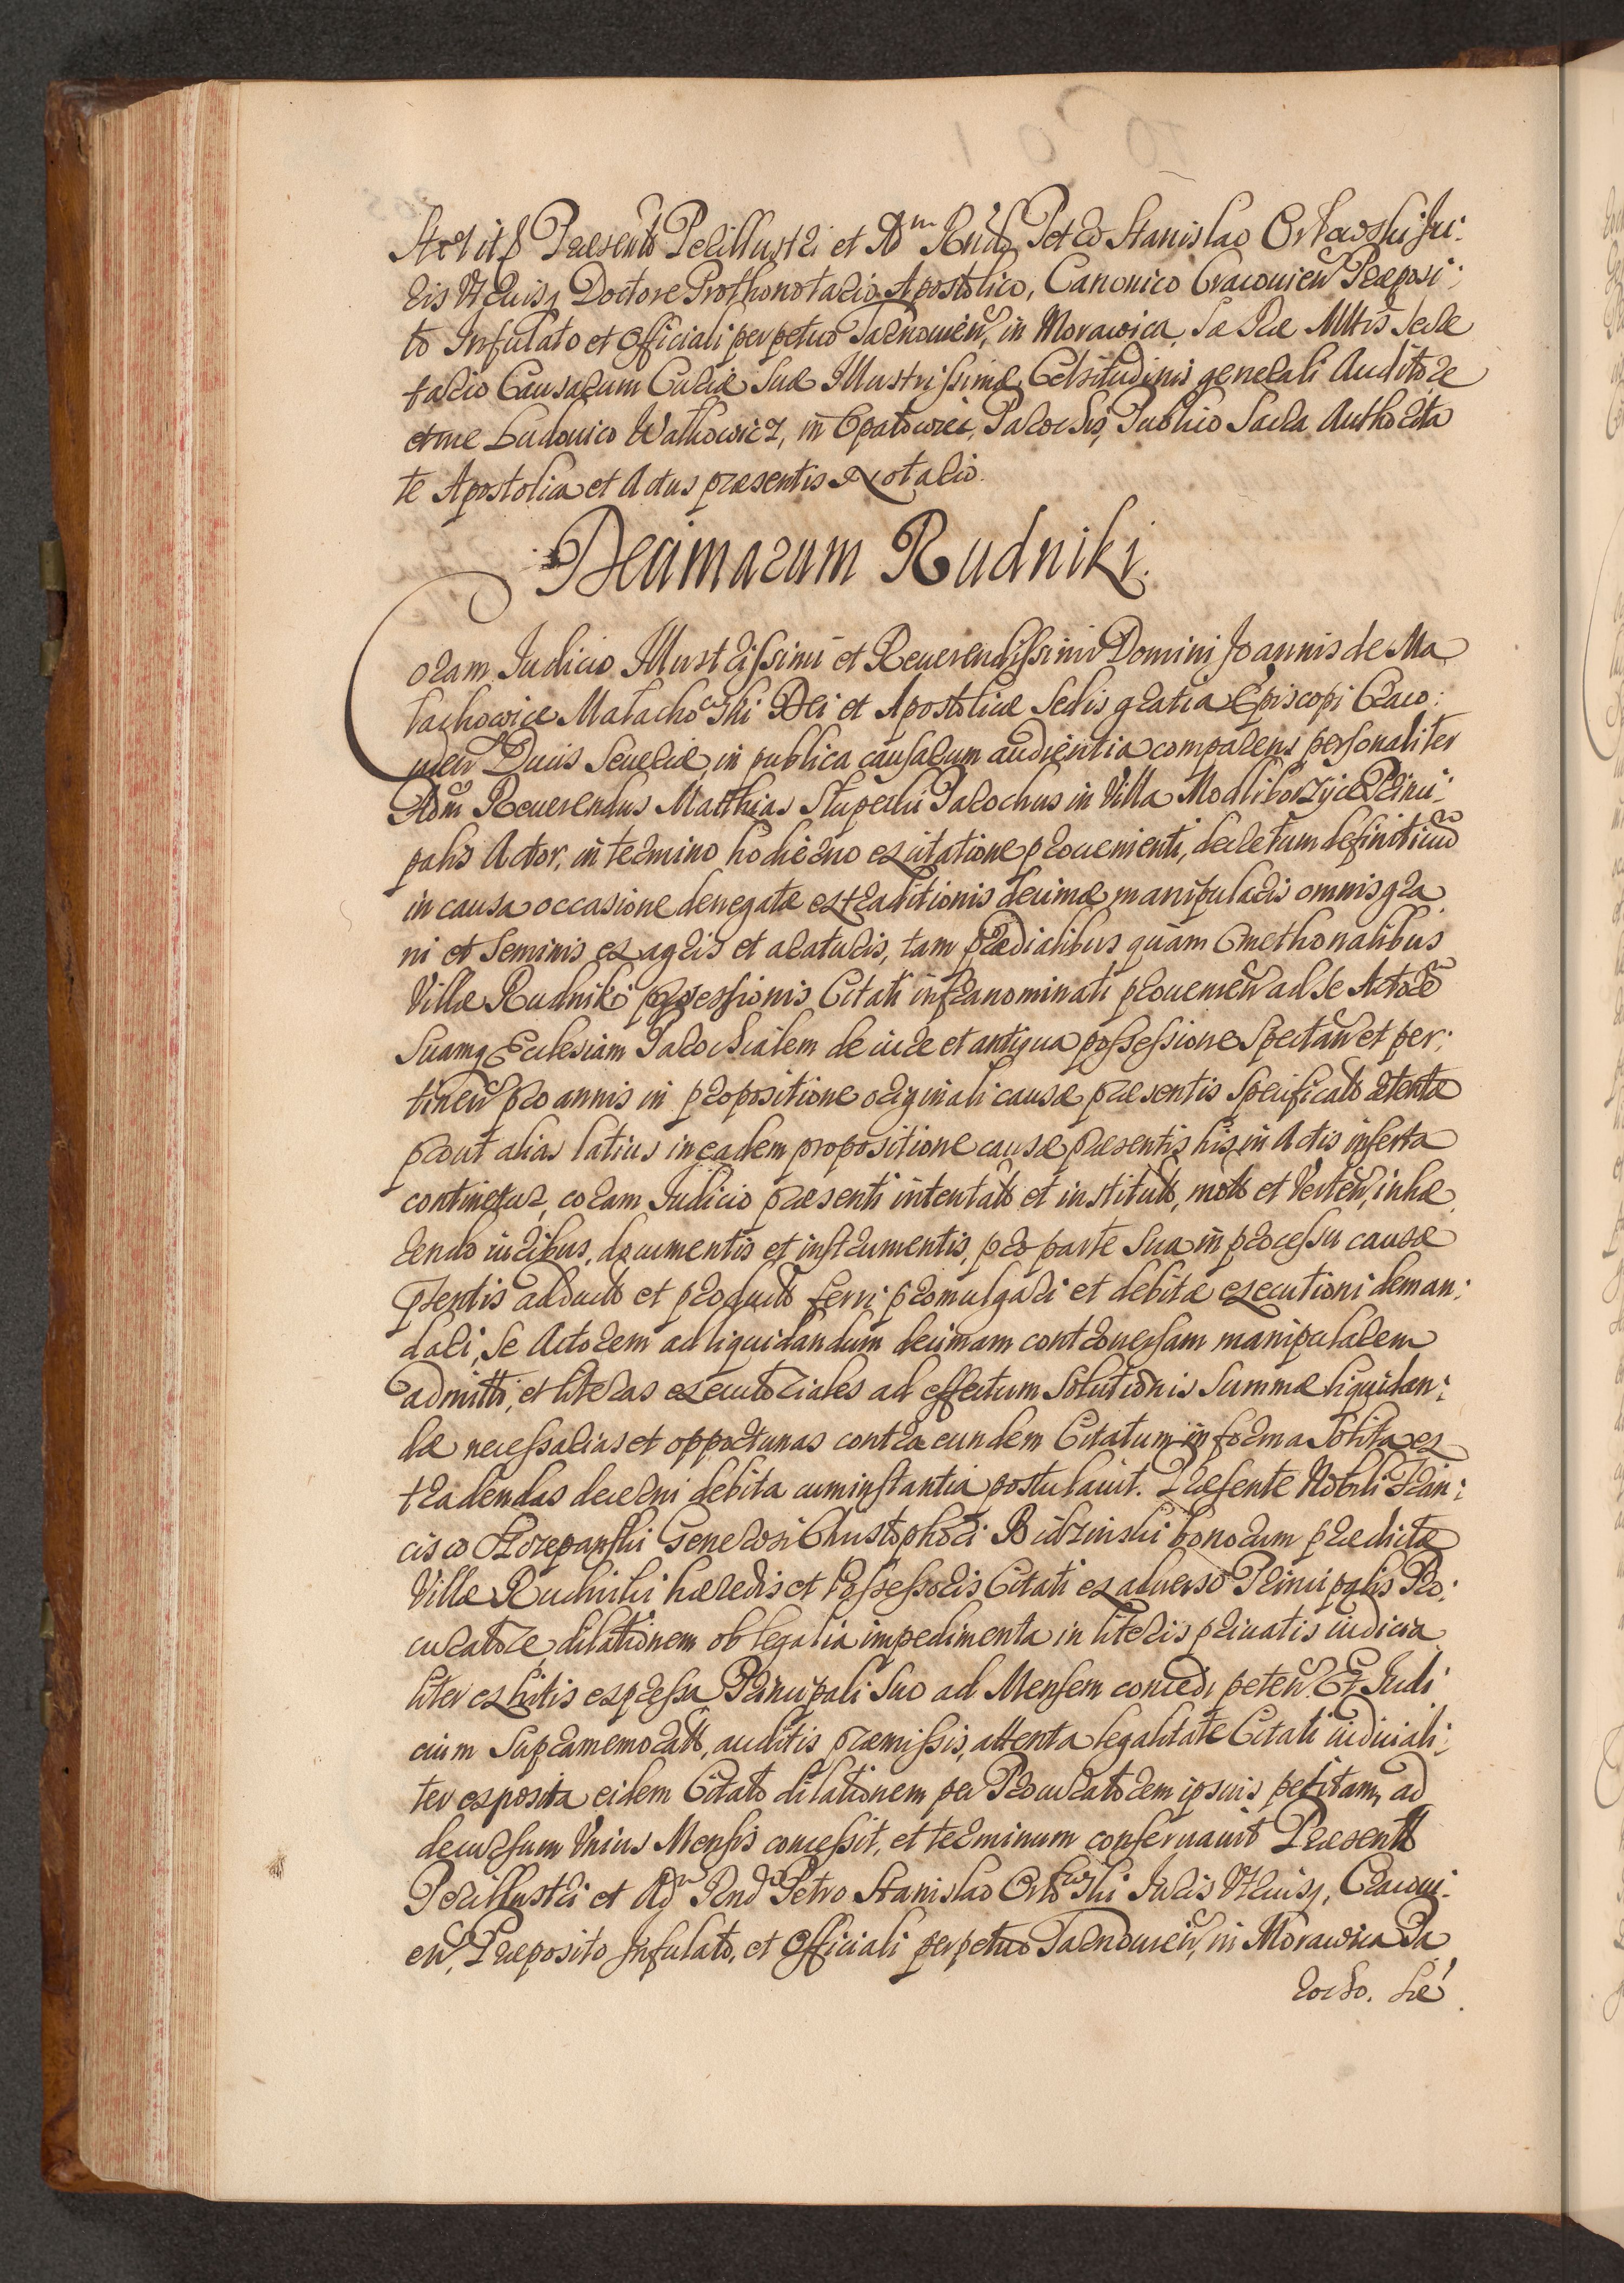 Praesente Perillustri et Adm Rndo Petro Stanislao Orłowski Ju:
ris Utriusq Doctore Prothonotario Apostolico, Canonico Cracouien Praeposi:
to Infulato et Officiali perpetuo Tarnouien, in Morawica, Sa Rae Mttis Secre
tario Causarum Curiae Suae Illustrissimae Celsitudinis generali Auditore
et me Ludouico Walkowicz, in Opatowiec, Parocho, Publico Sacra Authorita
te Apostolica et Actus praesentis Notario.
Decimarum Rudniki.
Coram Judicio Illustrissimi et Reuerendissimi Domini Joannis de Ma
łachowice Małachowski Dei et Apostolicae Sedis gratia Episcopi Craco:
uien Ducis Seueriae, in publica causarum audientia comparens personaliter
Adm Reuerendus Matthias Stuperki Parochus in Villa Modliborzyce Princi:
palis Actor, in termino hodierno ex citatione prouenienti, decretum definitiuu
in causa occasione denegatae extraditionis decimae manipularis omnis gra
ni et seminis ex agris et araturis, tam praedialibus quam Cmethonalibus
Villae Rudniki possessionis Citati infranominati prouenien ad se Actore
Suamq Ecclesiam Parochialem de iure et antiqua possessione spectan et per:
tinen pro annis in propositione originali causae praesentis specificatis retentae
prout alias latius in eadem propositione causae praesentis his in Actis inserta
continetur, coram Judicio praesenti intentata et instituta, mota et verten, inhae
rendo iuribus, documentis et instrumentis, pro parte sua in processu causae
psentis adductis et productis ferri promulgari et debitae executioni deman:
dari, se Actorem ad liquidandum decimam controuersam manipularem
admitti, et literas executoriales ad effectum solutionis summae liquidan:
dae necessarias et opportunas contra eundem Citatum in forma solita ex
tradendas decerni debita cum instantia postulauit. Praesente Nobili Fran:
cisco Szczepanski Generosi Christophori Bidzinski bonorum praedictae
Villae Rudniki haeredis et Possessoris Citati ex aduerso Principalis Pro:
curatore, dilationem ob legalia impedimenta in literis priuatis iudicia
liter exhibitis expressa Principali suo ad Mensem concedi peten. Et Judi
cium supramemorat, auditis praemissis, attenta legalitate Citati iudiciali:
ter exposita eidem Citato dilationem per Procuratorem ipsius petitam, ad
decursum Unius Mensis concessit, et terminum conseruauit Praesente
Perillustri et Adm Rndo Petro Stanislao Orłowski Juris Utriusq, Cracoui:
en, Praeposito Infulato, et Officiali perpetuo Tarnouien, in Morawica Pa
rocho. Sre